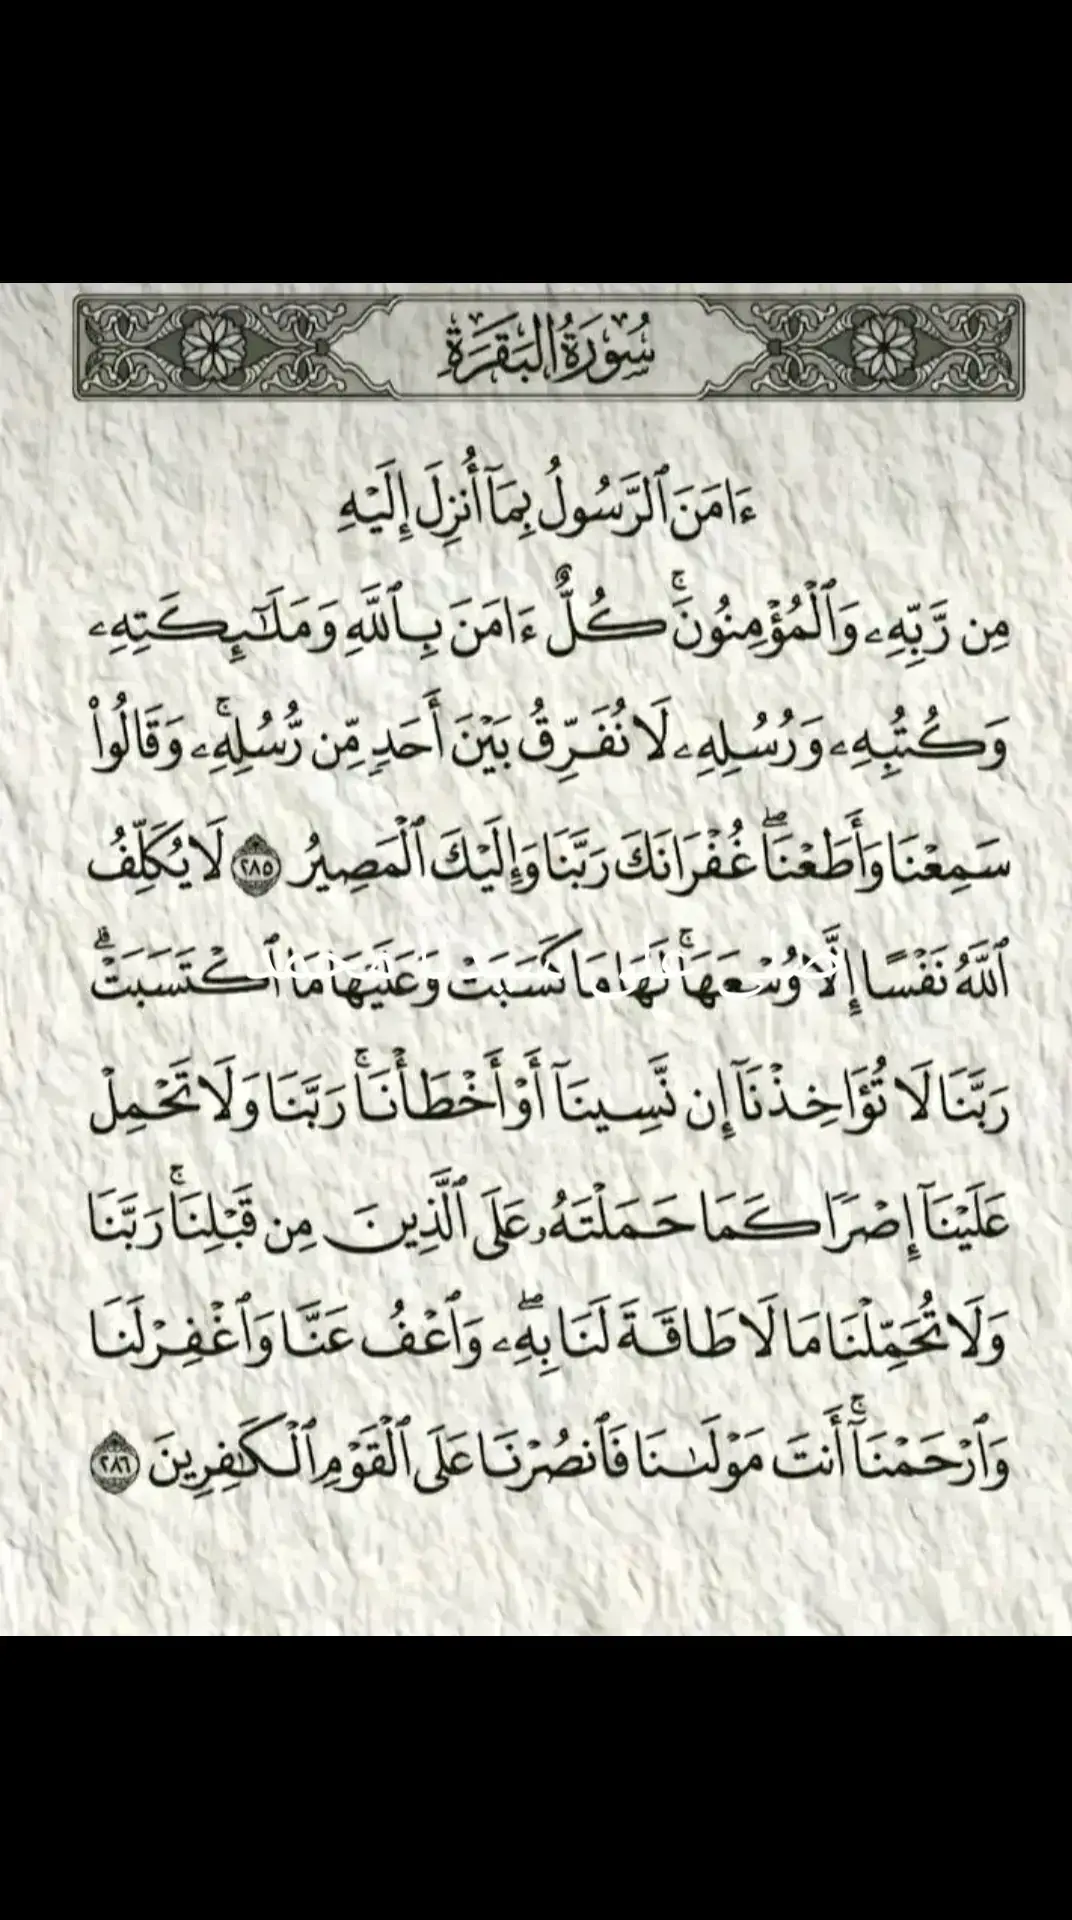 سُورَةُ البَقَرَةِ
ءَامَنَ ٱلرَّسُولُ بِمَآ أُنزِلَ إِلَيْهِ
مِن رَّبِّهِۦ وَٱلْمُؤْمِنُونَۚ كُلٌّ ءَامَنَ بِٱللَّهِ وَمَلَـٰٓئِكَتِهِۦ
وَكُتُبِهِۦ وَرُسُلِهِۦ لَا نُفَرِّقُ بَيْنَ أَحَدٍ مِّن رُّسُلِهِۦۚ وَقَالُوا۟
سَمِعْنَا وَأَطَعْنَاۖ غُفْرَانَكَ رَبَّنَا وَإِلَيْكَ ٱلْمَصِيرُ ٢٨٥ لَا يُكَلِّفُ
ٱللَّهُ نَفْسًا إِلَّا وُسْعَهَاۚ لَهَا مَا كَسَبَتْ وَعَلَيْهَا مَا ٱكْتَسَبَتْۗ
صل على سيدنا محمد
رَبَّنَا لَا تُؤَاخِذْنَآ إِن نَّسِينَآ أَوْ أَخْطَأْنَاۚ رَبَّنَا وَلَا تَحْمِلْ
عَلَيْنَآ إِصْرًا كَمَا حَمَلْتَهُۥ عَلَى ٱلَّذِينَ مِن قَبْلِنَاۚ رَبَّنَا
وَلَا تُحَمِّلْنَا مَا لَا طَاقَةَ لَنَا بِهِۦۖ وَٱعْفُ عَنَّا وَٱغْفِرْ لَنَا
وَٱرْحَمْنَآۚ أَنتَ مَوْلَىٰنَا فَٱنصُرْنَا عَلَى ٱلْقَوْمِ ٱلْكَـٰفِرِينَ ٢٨٦